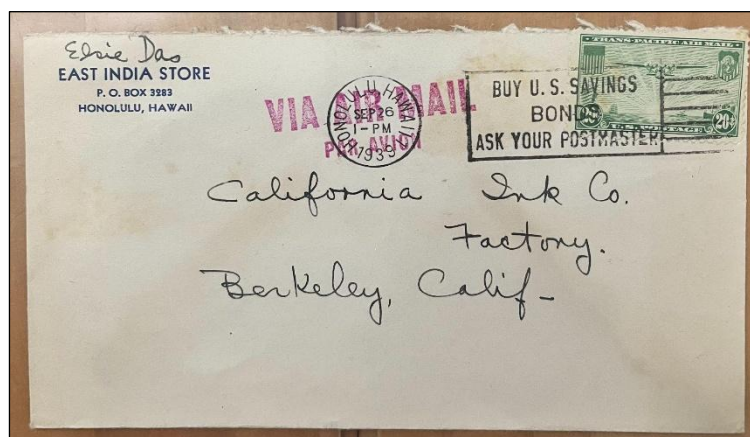 Elsie Das
EAST INDIA STORE
P. O. BOX 3283
HONOLULU, HAWAII
VIA AIR MAIL
PAR AVION
HONOLULU HAWAII
SEP 26
1-PM
1939
BUY U. S. SAVINGS
BONDS
ASK YOUR POSTMASTER
TRANS-PACIFIC AIR MAIL
20¢
California Ink Co.
Factory.
Berkeley, Calif-